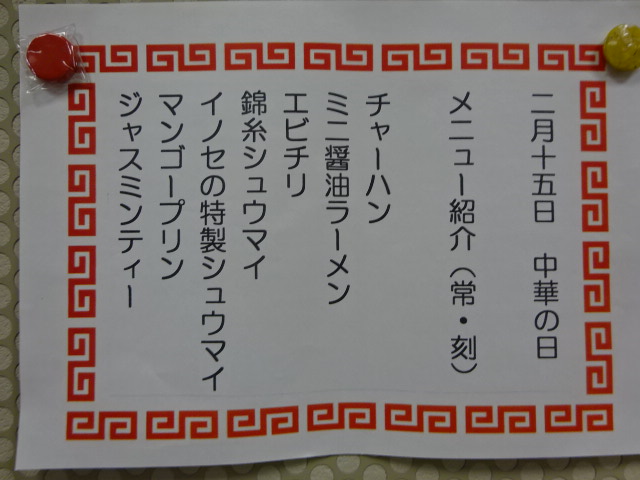 二月十五日　中華の日
メニュー紹介（常・刻）
チャーハン
ミニ醤油ラーメン
エビチリ
錦糸シュウマイ
イノセの特製シュウマイ
マンゴープリン
ジャスミンティー